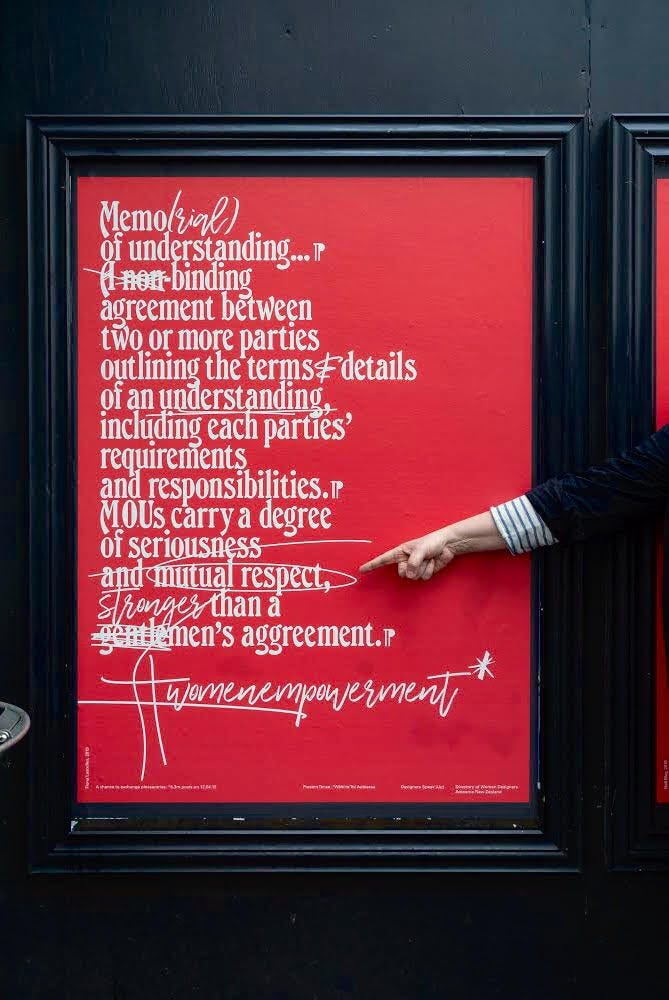 Memo(rial)
of understanding...
A non-binding
agreement between
two or more parties
outlining the terms & details
of an understanding,
including each parties'
requirements
and responsibilities.
MOUs carry a degree
of seriousness
and mutual respect,
stronger than a
gentlemen's aggreement.
#womenempowerment*
A chance to exchange pleasantries:
Designers Speak (Up)
Directory of Women Designers
Aotearoa New Zealand